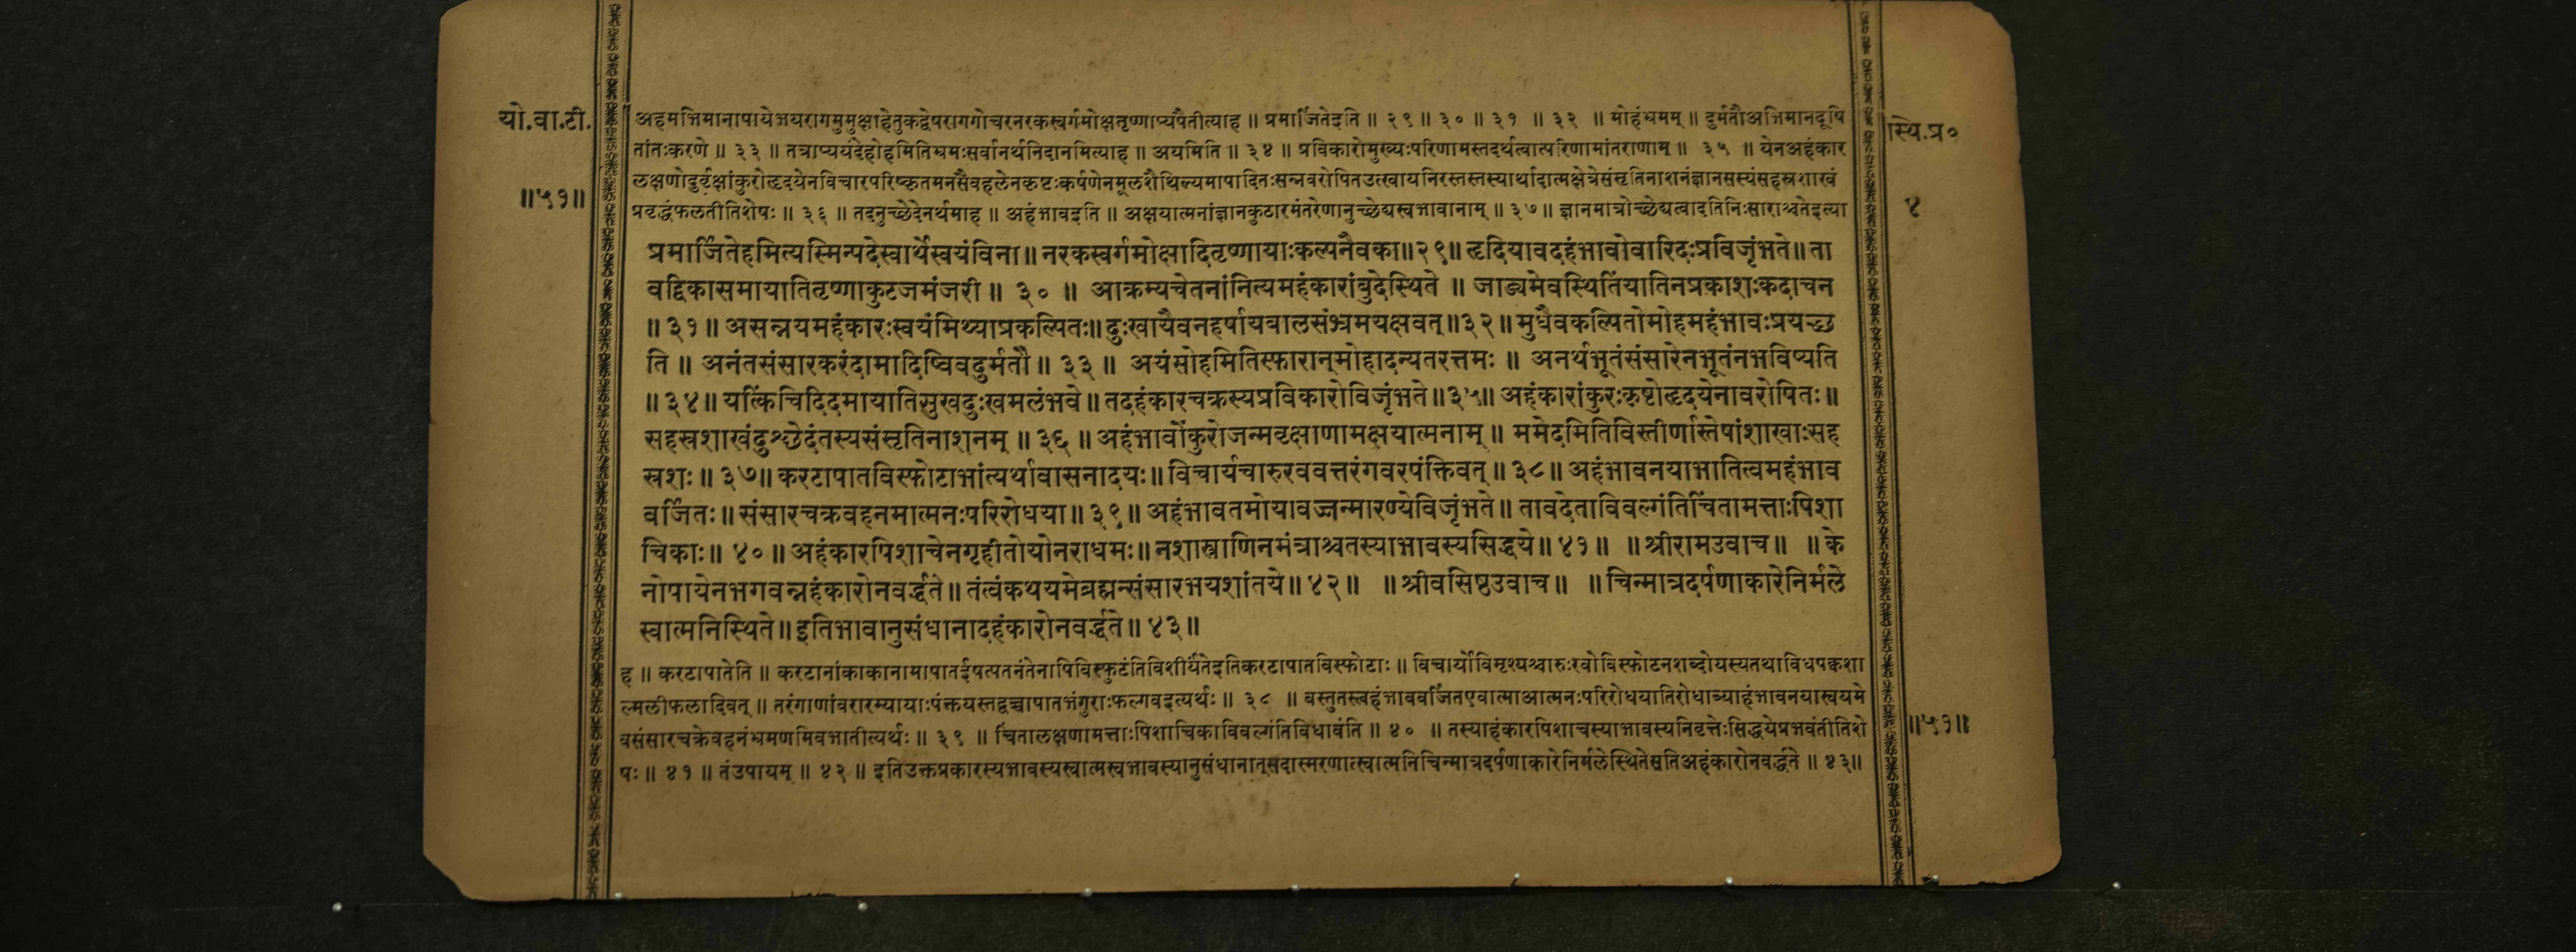 यो.वा.टी.
॥५१॥
अहमभिमानापायेभयरागमुमुक्षाहेतुकद्वेषरागगोचरनरकस्वर्गमोक्षतृष्णाप्यपैतीत्याह ॥ प्रमार्जितेइति ॥ २९ ॥ ३० ॥ ३१ ॥ ३२ ॥ मोहंभ्रमम् ॥ दुर्मतौअभिमानदूषि
तांतःकरणे ॥ ३३ ॥ तत्राप्ययंदेहोहमितिभ्रमःसर्वानर्थनिदानमित्याह ॥ अयमिति ॥ ३४ ॥ प्रविकारोमुख्यःपरिणामस्तदर्थत्वात्परिणामांतराणाम् ॥ ३५ ॥ येनअहंकार
लक्षणोदुर्वृक्षांकुरोहृदयेनविचारपरिष्कृतमनसैवहलेनकृष्टःकर्षणेनमूलशैथिल्यमापादितःसन्नवरोपितउत्खायनिरस्तस्तस्यार्थादात्मक्षेत्रेसंसृतिनाशनंज्ञानसस्यंसहस्रशाखं
प्रवृद्धंफलतीतिशेषः ॥ ३६ ॥ तदनुच्छेदेनर्थमाह ॥ अहंभावइति ॥ अक्षयात्मनांज्ञानकुठारमंतरेणानुच्छेद्यस्वभावानाम् ॥ ३७ ॥ ज्ञानमात्रोच्छेद्यत्वादतिनिःसाराश्चतेइत्या
प्रमार्जितेहमित्यस्मिन्पदेस्वार्थेस्वयंविना ॥ नरकस्वर्गमोक्षादितृष्णायाःकल्पनैवका ॥ २९ ॥ हृदियावदहंभावोवारिदःप्रविजृंभते ॥ ता
वद्विकासमायातितृष्णाकुटजमंजरी ॥ ३० ॥ आक्रम्यचेतनांनित्यमहंकारांबुदेस्थिते ॥ जाड्यमेवस्थितिंयातिनप्रकाशःकदाचन
॥ ३१ ॥ असन्नयमहंकारःस्वयंमिथ्याप्रकल्पितः ॥ दुःखायैवनहर्षायबालसंभ्रमयक्षवत् ॥ ३२ ॥ मुधैवकल्पितोमोहमहंभावःप्रयच्छ
ति ॥ अनंतसंसारकरंदामादिष्विवदुर्मतौ ॥ ३३ ॥ अयंसोहमितिस्फारान्मोहादन्यतरत्तमः ॥ अनर्थभूतंसंसारेनभूतंनभविष्यति
॥ ३४ ॥ यत्किंचिदिदमायातिसुखदुःखमलंभवे ॥ तदहंकारचक्रस्यप्रविकारोविजृंभते ॥ ३५ ॥ अहंकारांकुरःकृष्टोहृदयेनावरोपितः ॥
सहस्रशाखंदुश्छेदंतस्यसंसृतिनाशनम् ॥ ३६ ॥ अहंभावोंकुरोजन्मवृक्षाणामक्षयात्मनाम् ॥ ममेदमितिविस्तीर्णास्तेषांशाखाःसह
स्रशः ॥ ३७ ॥ करटापातविस्फोटाभांत्यर्थावासनादयः ॥ विचार्यचारुरववत्तरंगवरपंक्तिवत् ॥ ३८ ॥ अहंभावनयाभातित्वमहंभाव
वर्जितः ॥ संसारचक्रवहनमात्मनःपरिरोधया ॥ ३९ ॥ अहंभावतमोयावज्जन्मारण्येविजृंभते ॥ तावदेताविवल्गंतिचिंतामत्ताःपिशा
चिकाः ॥ ४० ॥ अहंकारपिशाचेनगृहीतोयोनराधमः ॥ नशास्त्राणिनमंत्राश्चतस्याभावस्यसिद्धये ॥ ४१ ॥ ॥ श्रीरामउवाच ॥ ॥ के
नोपायेनभगवन्नहंकारोनवर्द्धते ॥ तंत्वंकथयमेब्रह्मन्संसारभयशांतये ॥ ४२ ॥ ॥ श्रीवसिष्ठउवाच ॥ ॥ चिन्मात्रदर्पणाकारेनिर्मले
स्वात्मनिस्थिते ॥ इतिभावानुसंधानादहंकारोनवर्द्धते ॥ ४३ ॥
ह ॥ करटापातेति ॥ करटानांकाकानामापातईषत्पतनंतेनापिविस्फुटंतिविशीर्यंतेइतिकरटापातविस्फोटाः ॥ विचार्योविमृश्यश्चारुःरवोविस्फोटनशब्दोयस्यतथाविधपक्वशा
ल्मलीफलादिवत् ॥ तरंगाणांवरारम्यायाःपंक्तयस्तद्वच्चापातभंगुराःफल्गवइत्यर्थः ॥ ३८ ॥ वस्तुतस्त्वहंभाववर्जितएवात्माआत्मनःपरिरोधयातिरोधात्र्याहंभावनयास्वयमे
वसंसारचक्रेवहनंभ्रमणमिवभातीत्यर्थः ॥ ३९ ॥ चिंतालक्षणामत्ताःपिशाचिकाविवल्गंतिविधावंति ॥ ४० ॥ तस्याहंकारपिशाचस्याभावस्यनिवृत्तेःसिद्धयेप्रभवंतीतिशे
षः ॥ ४१ ॥ तंउपायम् ॥ ४२ ॥ इतिउक्तप्रकारस्यभावस्यस्वात्मस्वभावस्यानुसंधानात्सदास्मरणात्स्वात्मनिचिन्मात्रदर्पणाकारेनिर्मलेस्थितेसतिअहंकारोनवर्द्धते ॥ ४३ ॥
स्थि.प्र०
४
॥५१॥